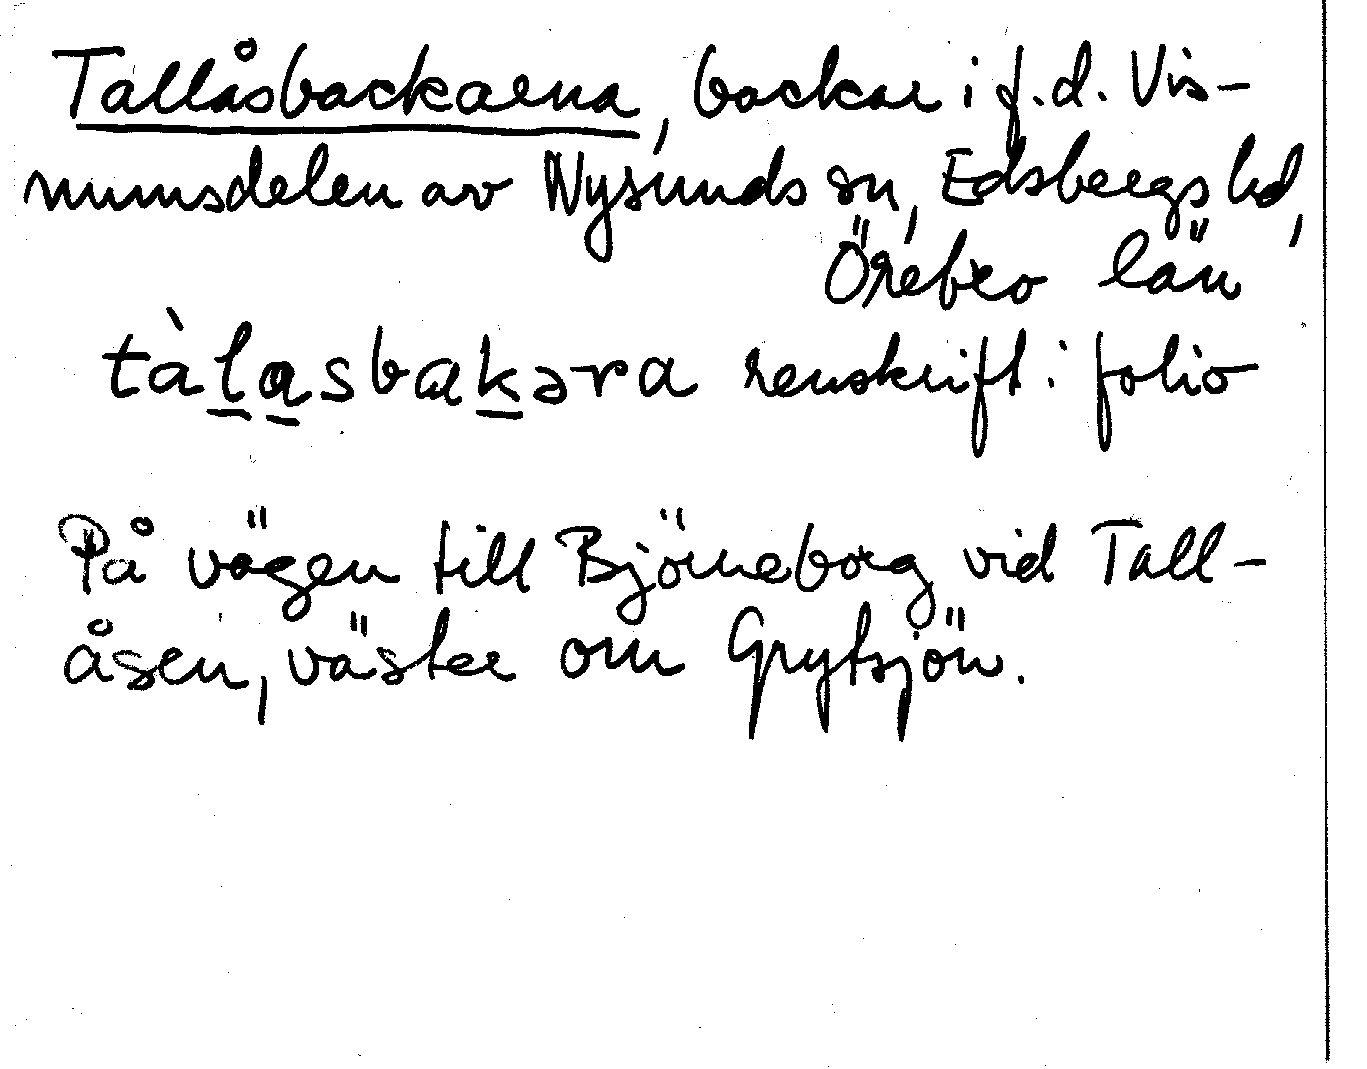 Tallåsbackarna, backar i f.d. Vis-
numsdelen av Nysunds sn, Edsbergs hd,
Örebro län
tàlasbakəra renskrift i folio
På vägen till Björneborg vid Tall-
åsen, väster om Grytsjön.